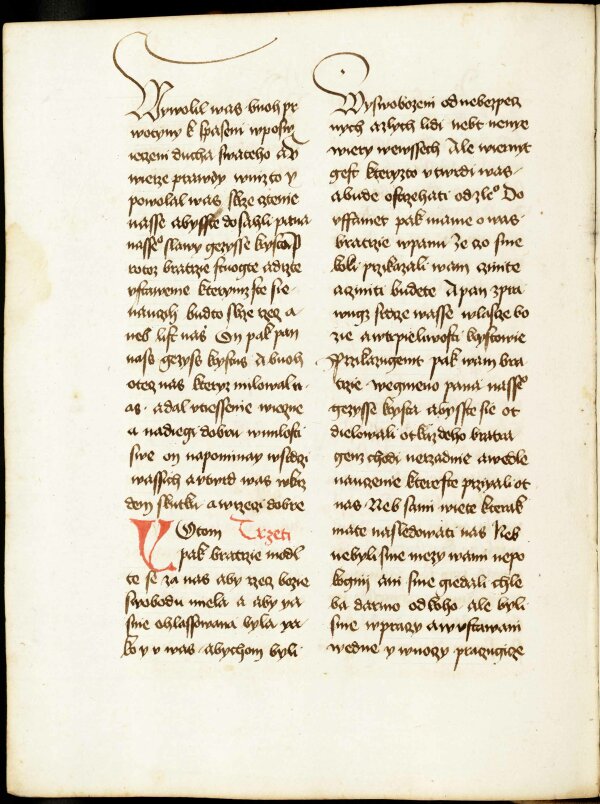 Wywolil was buoh pr
wotyny k spaseni wposw
ieczeni ducha swateho a v
wierze prawdy w niżto y
powolal was skrze cztenie
nasse abysste dosahli pana
nasseº slawy gezysse kysta P
rotoz bratrzie stuogte a drzte
vstawene kterymz ste sie
nauczyli budto skrze rzecz a
neb list nas On pak pan
nass gezyss kystus A buoh
otecz nas kteryz milowal n
as a dal vtiessenie wieczne
a nadiegi dobru w milosti
swe on napominay w srdczi
wassich a vtwrd was w kaz
dem skutku a w rzeczi dobre
Potom Trzeti
pak bratrzie modl
te se za nas aby rzecz bozie
swobodu miela a aby ya
sne ohlassowana byla ya
ko y v was abychom byli
Wyswobozeni od nebezpecz
nych a zlych lidi nebt nenye
wiery wewssech Ale wiernyt
gest kteryzto vtwrdi was
a bude ostrzehati od zleº Do
vffamet pak mame o was
bratrzie w panu ze czo sme
koli przikazali wam czinite
a cziniti budete A pan zpra
wugz srdcze wasse w lasce bo
zie a w trpieliwosti kystowie
Przikazugemt pak wam bra
trzie wegmeno pana nasseº
gezysse kysta abysste sie ot
dielowali ot kazdeho bratra
genz chodi nerzadnie a wedle
nauczenie ktere ste przyali ot
nas Neb sami wiete kterak
mate nasledowati nas Neb
nebyli sme mezy wami nepo
kogni ani sme giedali chle
ba darmo od koho ale byli
sme w praczy a w vstawani
wedne y w noczy praczugicze